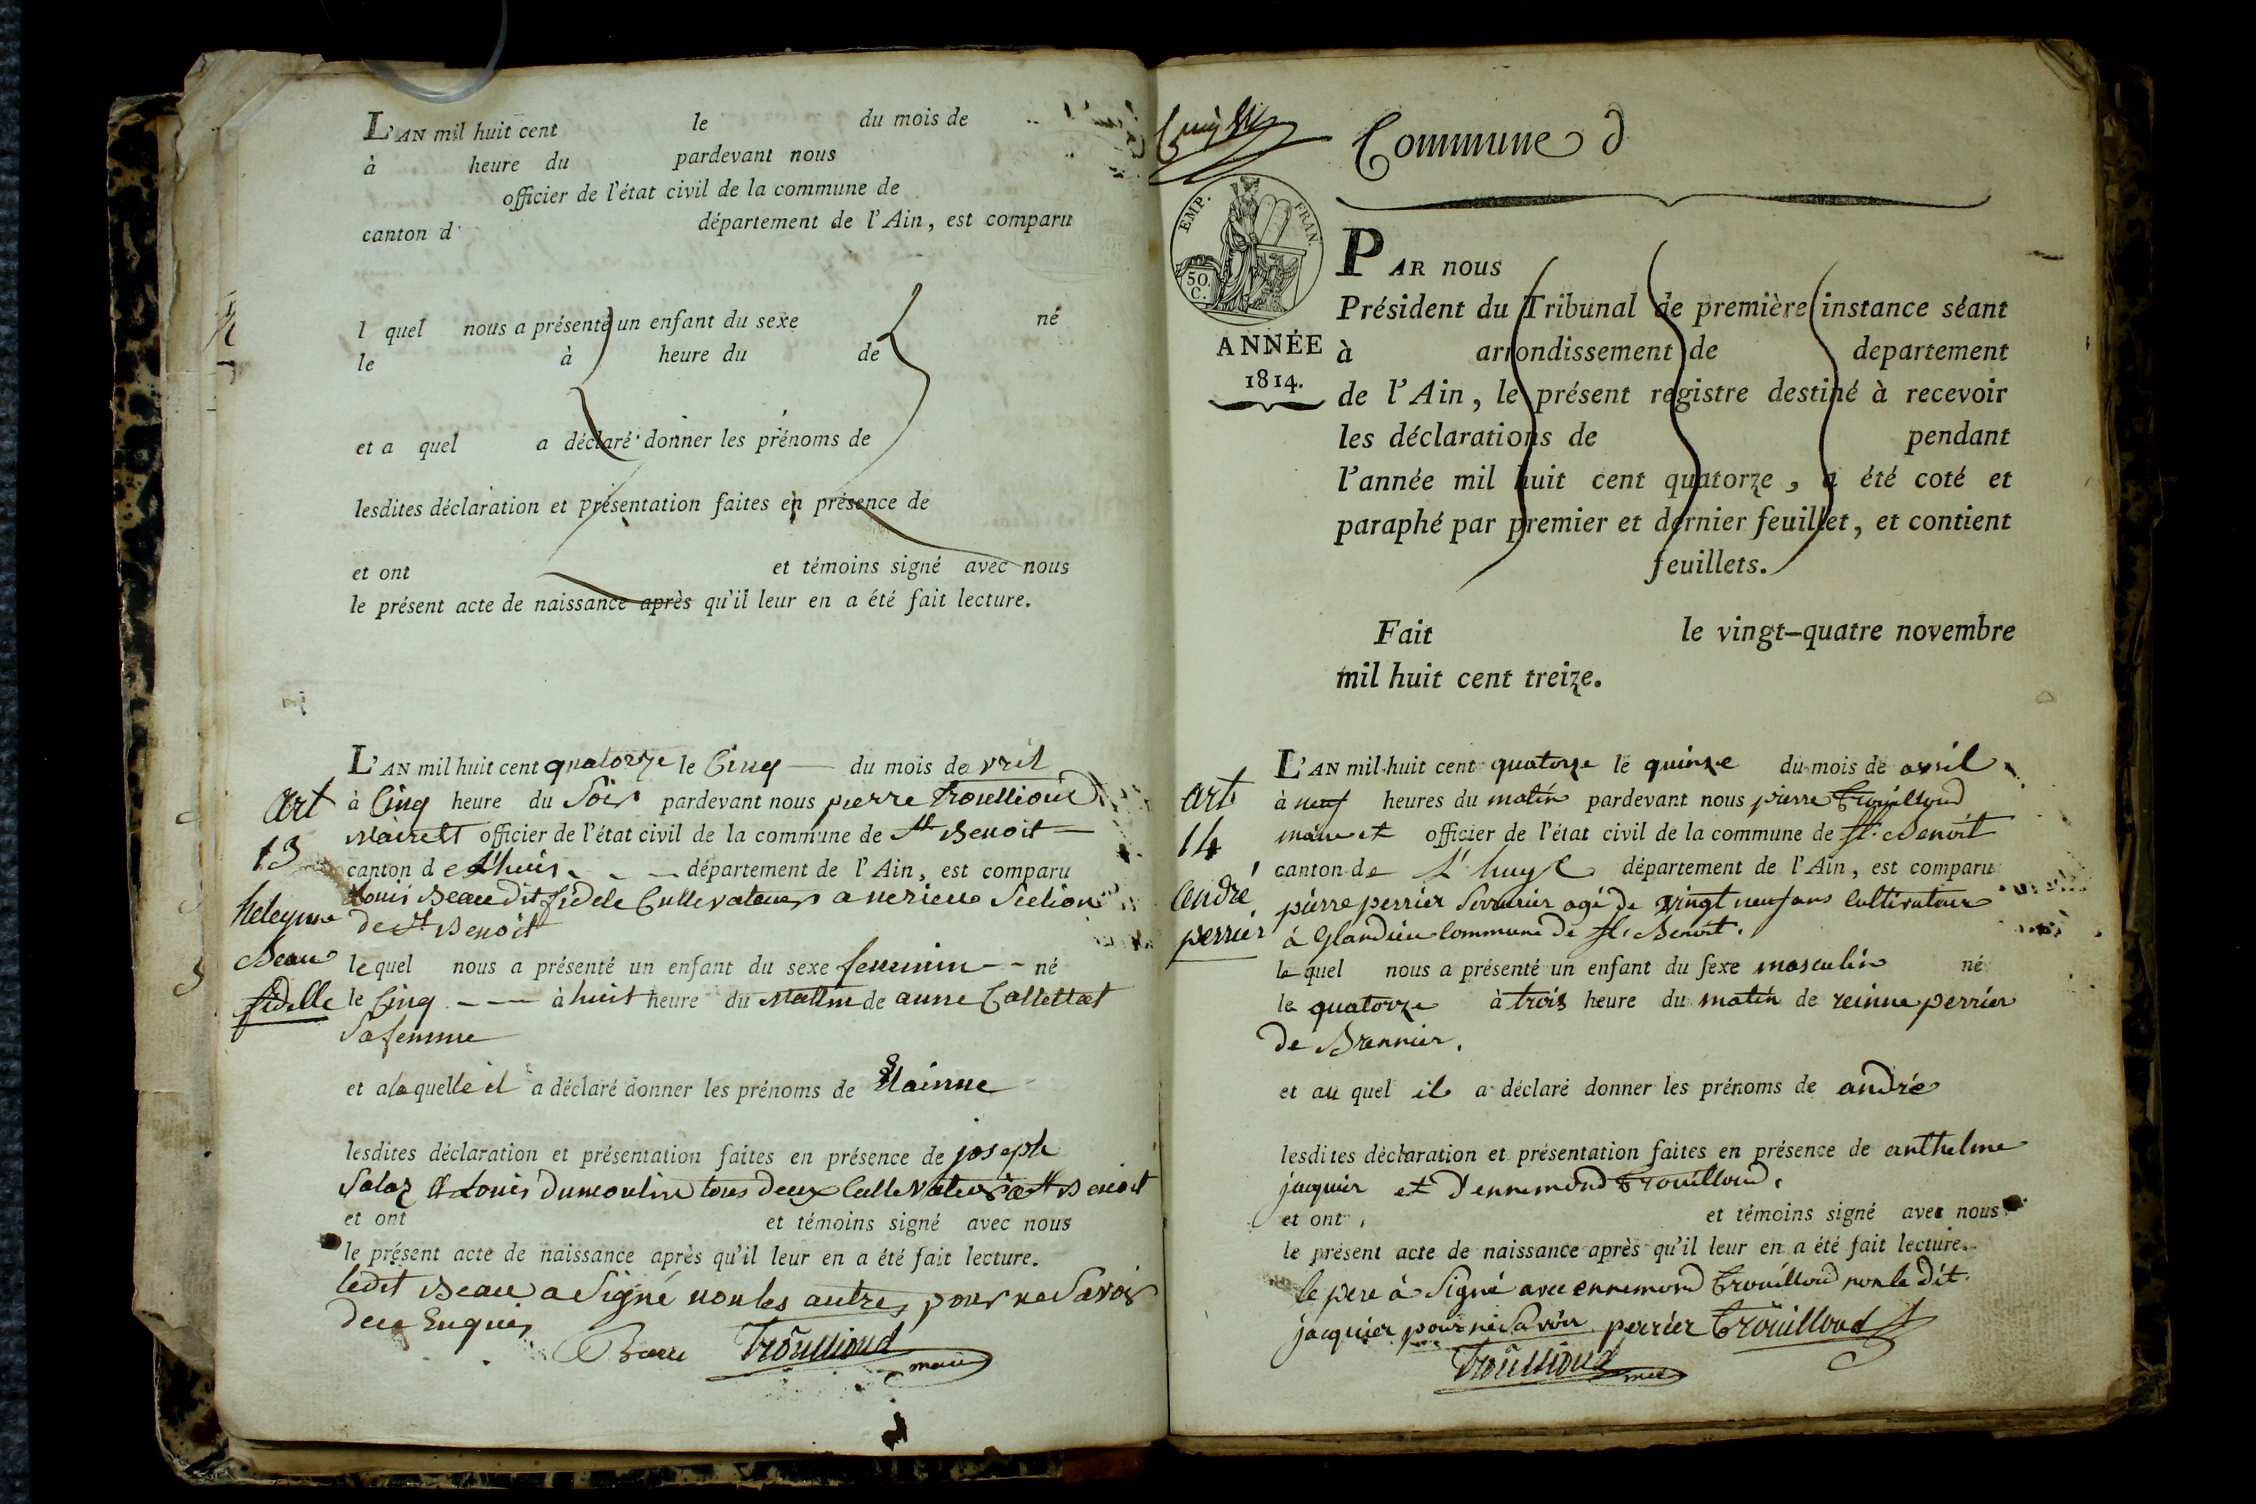 L'AN mil huit cent le du mois de
à heure du pardevant nous
officier de l'état civil de la commune de
canton d département de l'Ain, est comparu
l quel nous a présenté un enfant du sexe né
le à heure du de
et a quel a déclaré donner les prénoms de
lesdites déclaration et présentation faites en présence de
et ont et témoins signé avec nous
le présent acte de naissance après qu'il leur en a été fait lecture.
art
13
heleynne
Beau
fidelle
L'AN mil huit cent quatorze le Cinq du mois de vril
à Cinq heure du Soir pardevant nous pierre Trouilloud
Maire et officier de l'état civil de la commune de St Benoit
canton de L'huis département de l'Ain, est comparu
Louis Beau dit fidele Cultivateur a nerieu Section
de St Benoit
le quel nous a présenté un enfant du sexe feminin né
le Cinq à huit heure du Matin de anne Collettat
Sa femme
et a la quelle il a déclaré donner les prénoms de
lesdites déclaration et présentation faites en présence de joseph
Salaz et Louis dumoulin tous deux Cultivateurs à St Benoit
et ont et témoins signé avec nous
le présent acte de naissance après qu'il leur en a été fait lecture.
ledit Beau a Signé non les autres pour ne Savoir
de ce Enquis
Beau Trouilloud
maire
Commune d
EMP. FRAN.
50.
C.
ANNÉE
1814.
PAR nous
Président du Tribunal de première instance séant
à arrondissement de departement
de l'Ain, le présent registre destiné à recevoir
les déclarations de pendant
l'année mil huit cent quatorze, a été coté et
paraphé par premier et dernier feuillet, et contient
feuillets.
Fait le vingt-quatre novembre
mil huit cent treize.
art
14
andré
perrier
L'AN mil huit cent quatorze le quinze du mois de avril
à neuf heures du matin pardevant nous pierre Trouilloud
maire et officier de l'état civil de la commune de St. Benoit
canton de L'huys département de l'Ain, est comparu
pierre perrier Serrurier agé de vingt neuf ans Cultivateur
à Glandieu Commune de St. Benoit.
le quel nous a présenté un enfant du sexe masculin né
le quatorze à trois heure du matin de reinne perrier
de Brennier.
et au quel il a déclaré donner les prénoms de andré
lesdites déclaration et présentation faites en présence de anthelme
jacquier et d'ennemond Trouilloud.
et ont et témoins signé avec nous
le présent acte de naissance après qu'il leur en a été fait lecture.
le pere à Signé avec ennemond Trouilloud non le dit
jacquier pour ne Savoir perrier Trouilloud
Trouilloud
maire